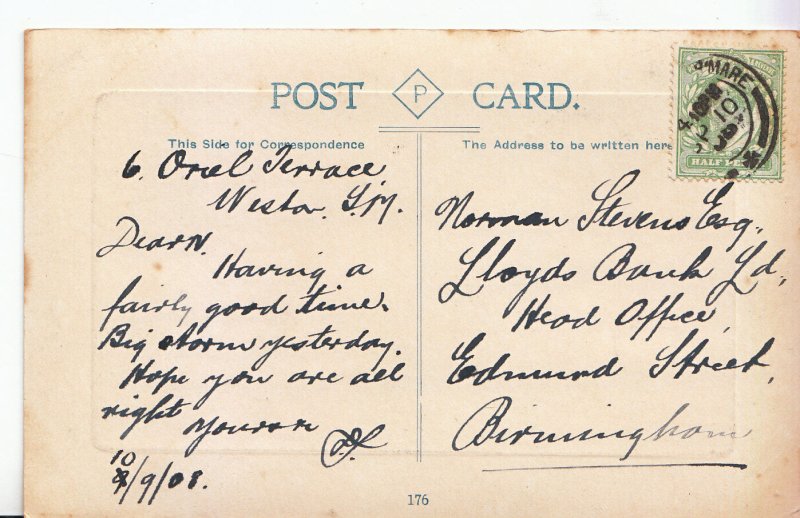 POST P CARD.
This Side for Correspondence
The Address to be written here
6. Oriel Terrace,
Weston. S.M.
Dear N.
Having a
fairly good time.
Big storm yesterday.
Hope you are all
right
Yours
10/9/08.
Norman Stevens Esq.,
Lloyds Bank Ld,
Head Office,
Edmund Street,
Birmingham
MARE
10
HALF PE
176